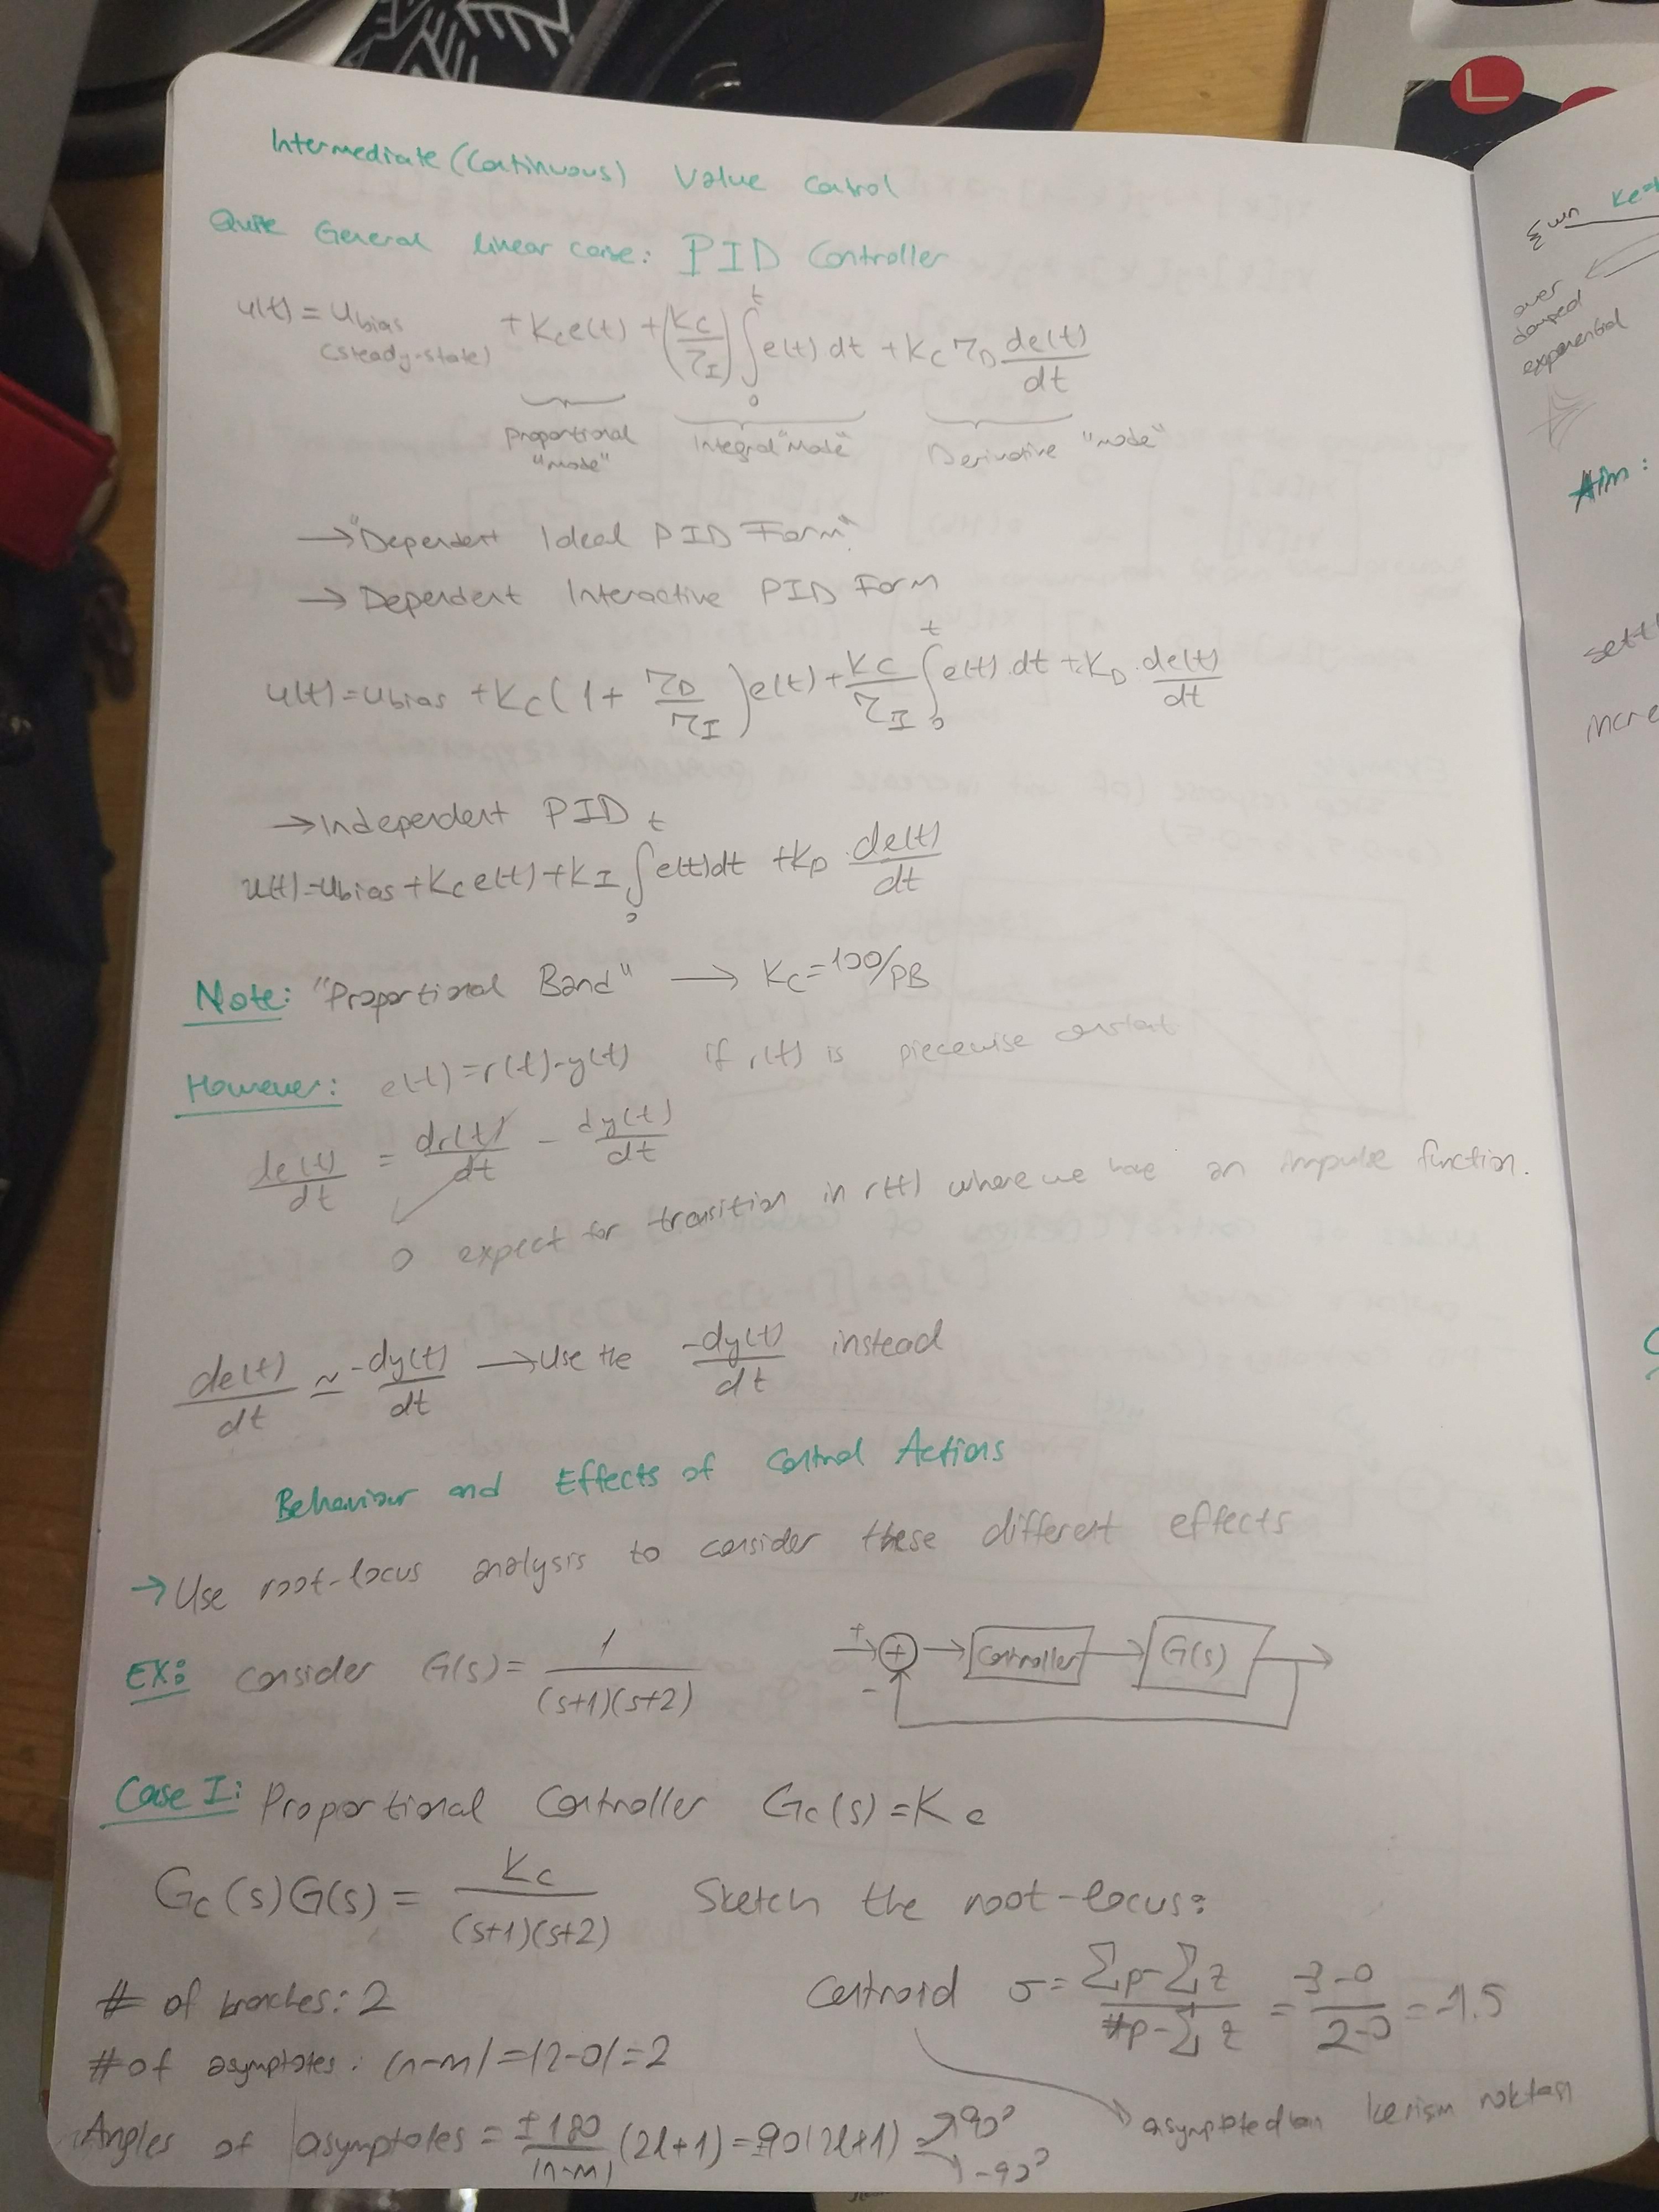 Intermediate (Continuous) Value Control
Quite General linear case: PID Controller
u(t) = u_bias (steady-state) + Kc e(t) + (Kc/τ_I) ∫₀ᵗ e(t) dt + Kc τ_D de(t)/dt
Proportional "mode" Integral "Mode" Derivative "mode"
→ "Dependent Ideal PID Form"
→ Dependent Interactive PID Form
u(t) = u_bias + Kc (1 + τ_D/τ_I) e(t) + Kc/τ_I ∫₀ᵗ e(t) dt + K_D · de(t)/dt
→ Independent PID
u(t) = u_bias + Kc e(t) + K_I ∫₀ᵗ e(t) dt + K_D · de(t)/dt
Note: "Proportional Band" → Kc = 100/PB
However: e(t) = r(t) - y(t) if r(t) is piecewise constant
de(t)/dt = dr(t)/dt - dy(t)/dt
0 expect for transition in r(t) where we have an impulse function.
de(t)/dt ≃ -dy(t)/dt → Use the -dy(t)/dt instead
Behaviour and Effects of Control Actions
→ Use root-locus analysis to consider these different effects
EX: consider G(s) = 1/(s+1)(s+2)
+ + - Controller G(s)
Case I: Proportional Controller Gc(s) = Kc
Gc(s)G(s) = Kc/(s+1)(s+2) Sketch the root-locus:
# of branches: 2
Centroid σ = Σp-Σz/#p-Σz = -3-0/2-0 = -1.5
# of asymptotes: |n-m| = |2-0| = 2
asymptotedan kesism noktası
Angles of asymptotes = ±180/|n-m| (2l+1) = 90(2l+1) = 90° -90°
ξwn
over damped exponential
Aim:
L